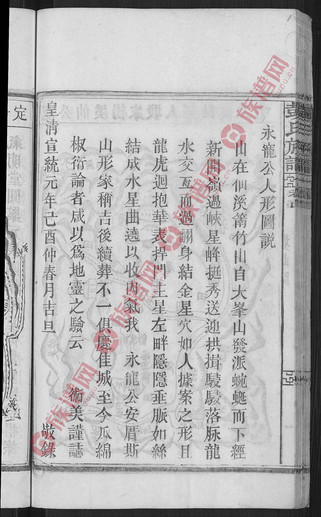 彭氏族譜
永寵公人形圖說
山在仙溪箭竹山自大峯山發派蜿蜒而下經
新開嶺過峽星峰挺秀送迎拱揖駸駸落脉龍
水交互而過翻身結金星穴如人據案之形且
龍虎迴抱華表捍門主星左畔隱隱垂脈如絲
結成水星曲遶以收內氣我 永寵公安厝斯
山形家稱吉後續葬不一俱慶佳城至今瓜綿
椒衍論者咸以為地靈之驗云 衡美謹誌
皇清宣統元年己酉仲春月吉旦 敬錄
定
族譜网